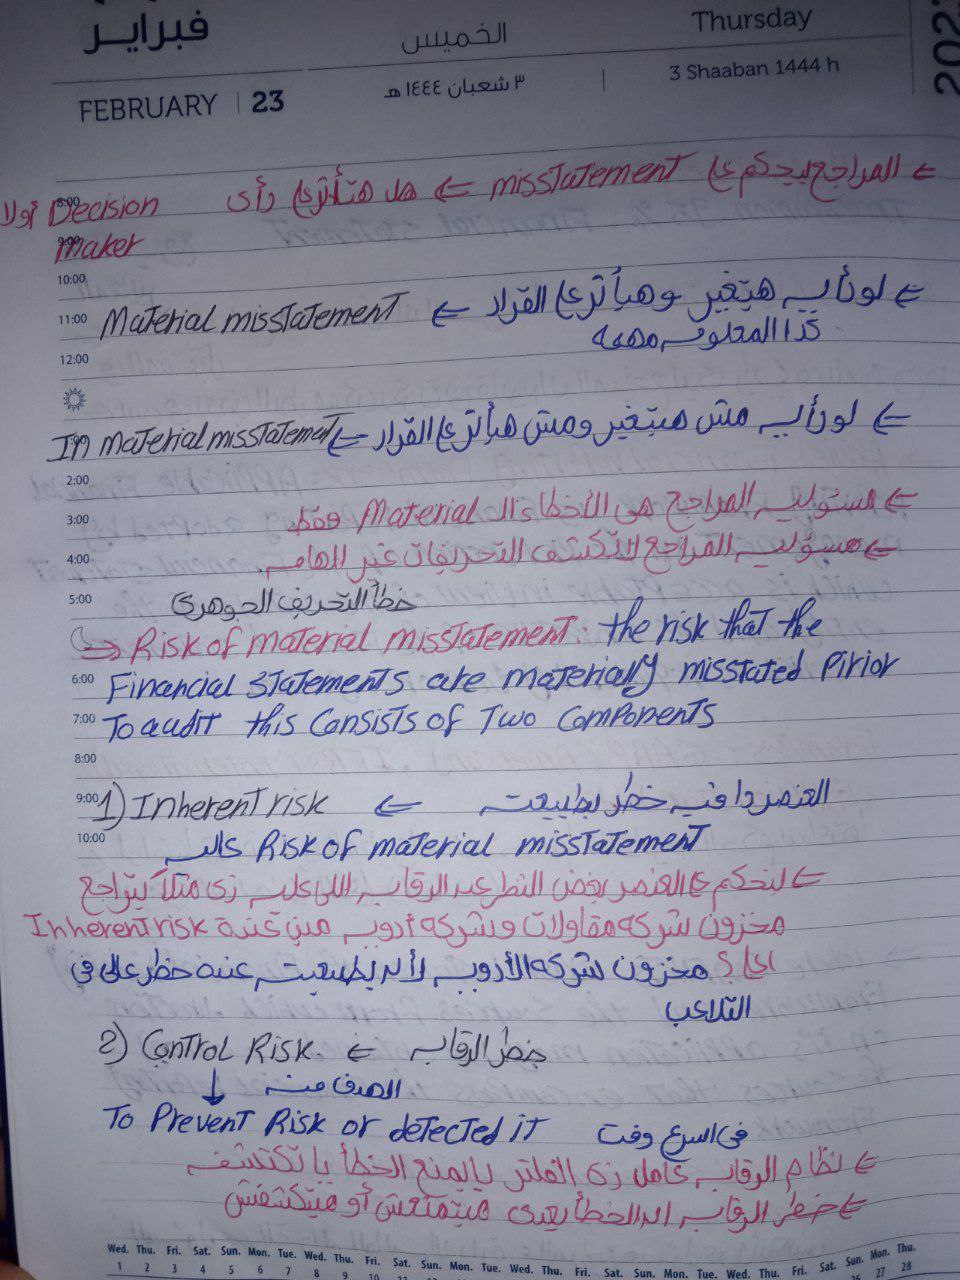 فبراير الخميس Thursday
FEBRUARY | 23 ٣ شعبان ١٤٤٤ هـ | 3 Shaaban 1444 h
202
← المراجع ليحكم على misstatement ← هل هتأثر على رأى Decision أولا
8:00
maker
9:00
10:00
← لو رأيه هيتغير وهيأثر على القرار ← Material misstatement
11:00
كدا المعلومه مهمه
12:00
← لو رأيه مش هيتغير ومش هيأثر على القرار ← In material misstatement
2:00
← مسئوليه المراجع هى الأخطاء الـ Material فقط
3:00
← مسؤليه المراجع لا تكشف التحريفات غير الهامه.
4:00
خطأ التحريف الجوهرى
5:00
→ Risk of material misstatement: the risk that the
6:00
Financial statements are materially misstated Pirior
7:00
To audit this Consists of Two Components
8:00
9:00
1) Inherent risk ← العنصر دا فيه خطر بطبيعته
10:00
عاليه Risk of material misstatement
← لنحكم على العنصر بغض النظر عن الرقابه اللى عليه زى مثلاً بتراجع
مخزون شركه مقاولات وشركه أدويه مين عنده Inherent risk
اعلى؟ مخزون شركه الأدويه لأنه بطبيعته عنده خطر عالى فى
التلاعب
2) Control Risk. ← خطر الرقابه
↓ الهدف منه
To Prevent Risk or detected it فى اسرع وقت
← نظام الرقابه عامل زى الفلتر يا يمنع الخطأ يا تكتشفه
← خطر الرقابه ان الخطأ يعدى ميتمنعش أو ميتكشفش
Wed. Thu. Fri. Sat. Sun. Mon. Tue. Wed. Thu. Fri. Sat. Sun. Mon. Tue. Wed. Thu. Fri. Sat. Sun. Mon. Tue. Wed. Thu. Fri. Sat. Sun. Mon. Thu.
1 2 3 4 5 6 7 8 9 10 26 27 28